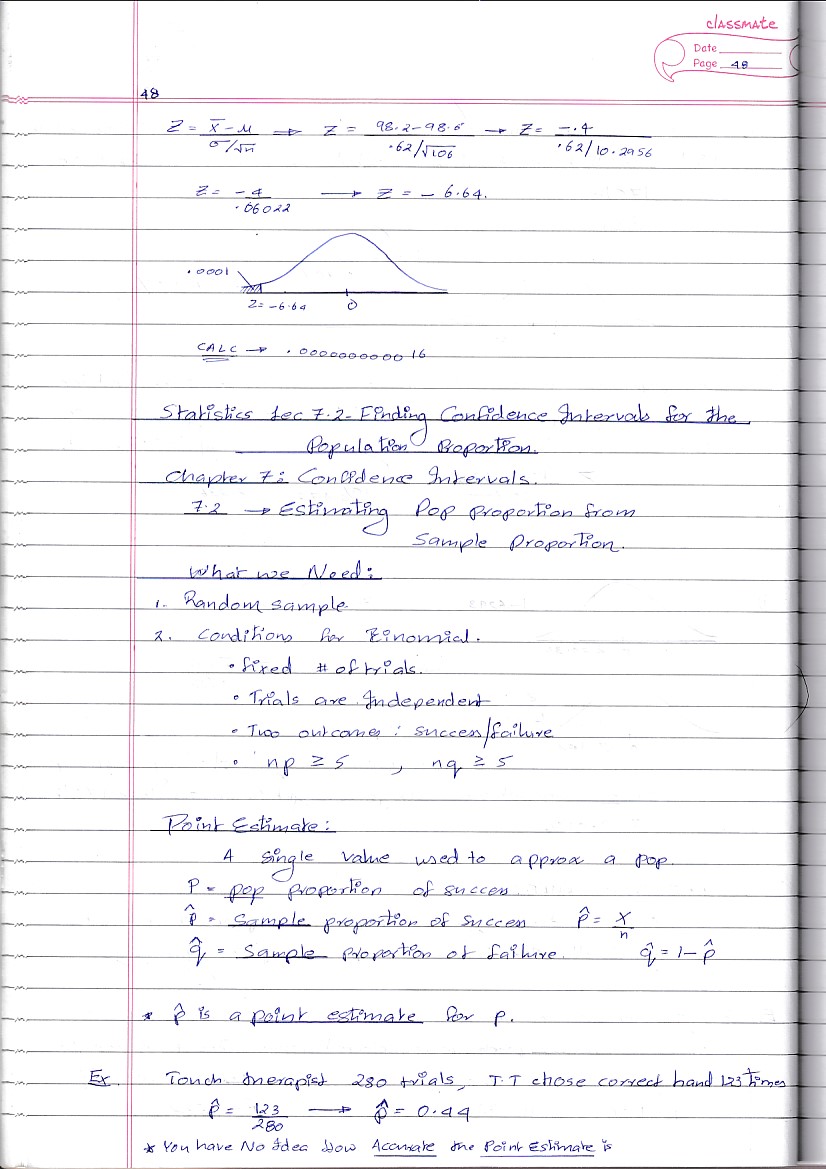 classmate
Date
Page 48
48
Z = x̄ - μ / σ/√n → Z = 98.2-98.6 / .62/√106 → Z = -.4 / .62/10.2956
Z = -4 / .06022 → Z = - 6.64.
.0001
Z= -6.64 0
CALC → .000000000016
Statistics Lec 7.2 - Finding Confidence Intervals for the
Population Proportion.
Chapter 7: Confidence Intervals.
7.2 → Estimating Pop proportion from
Sample Proportion.
What we Need:
1. Random sample
2. Conditions for Binomial.
• fixed # of trials.
• Trials are Independent
• Two outcomes: success/failure
• np ≥ 5 , nq ≥ 5
Point Estimate:
A single value used to approx a pop.
P = pop proportion of success
p̂ = Sample proportion of success p̂ = x/n
q̂ = Sample proportion of failure. q̂ = 1-p̂
* p̂ is a point estimate for p.
Ex. Touch therapist 280 trials, T.T chose correct hand 123 times
p̂ = 123/280 → p̂ = 0.44
* You have No Idea How Accurate the Point Estimate is